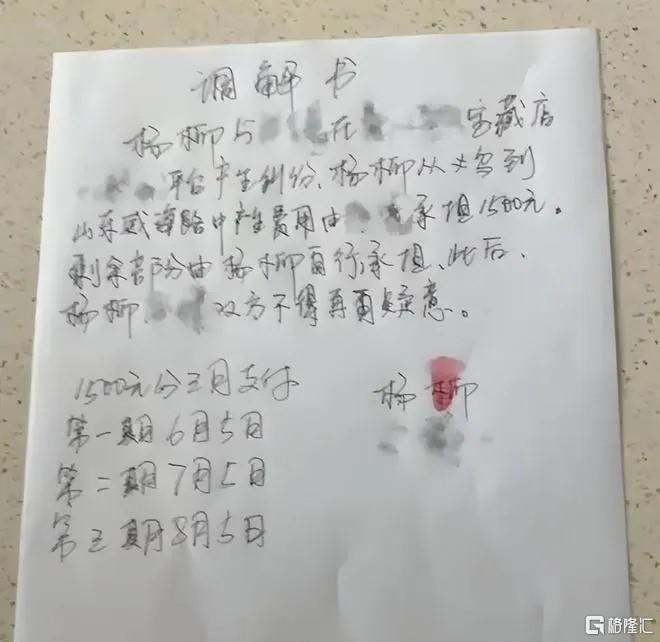 调解书
杨柳与 在 宝藏店
平台产生纠纷、杨柳从义乌到
山东威海路中产生费用由 承担1500元。
剩余部分由杨柳自行承担、此后、
杨柳、 双方不得再有疑意。
1500元分三月支付
第一期6月5日
第二期7月5日
第三期8月5日
杨柳
格隆汇